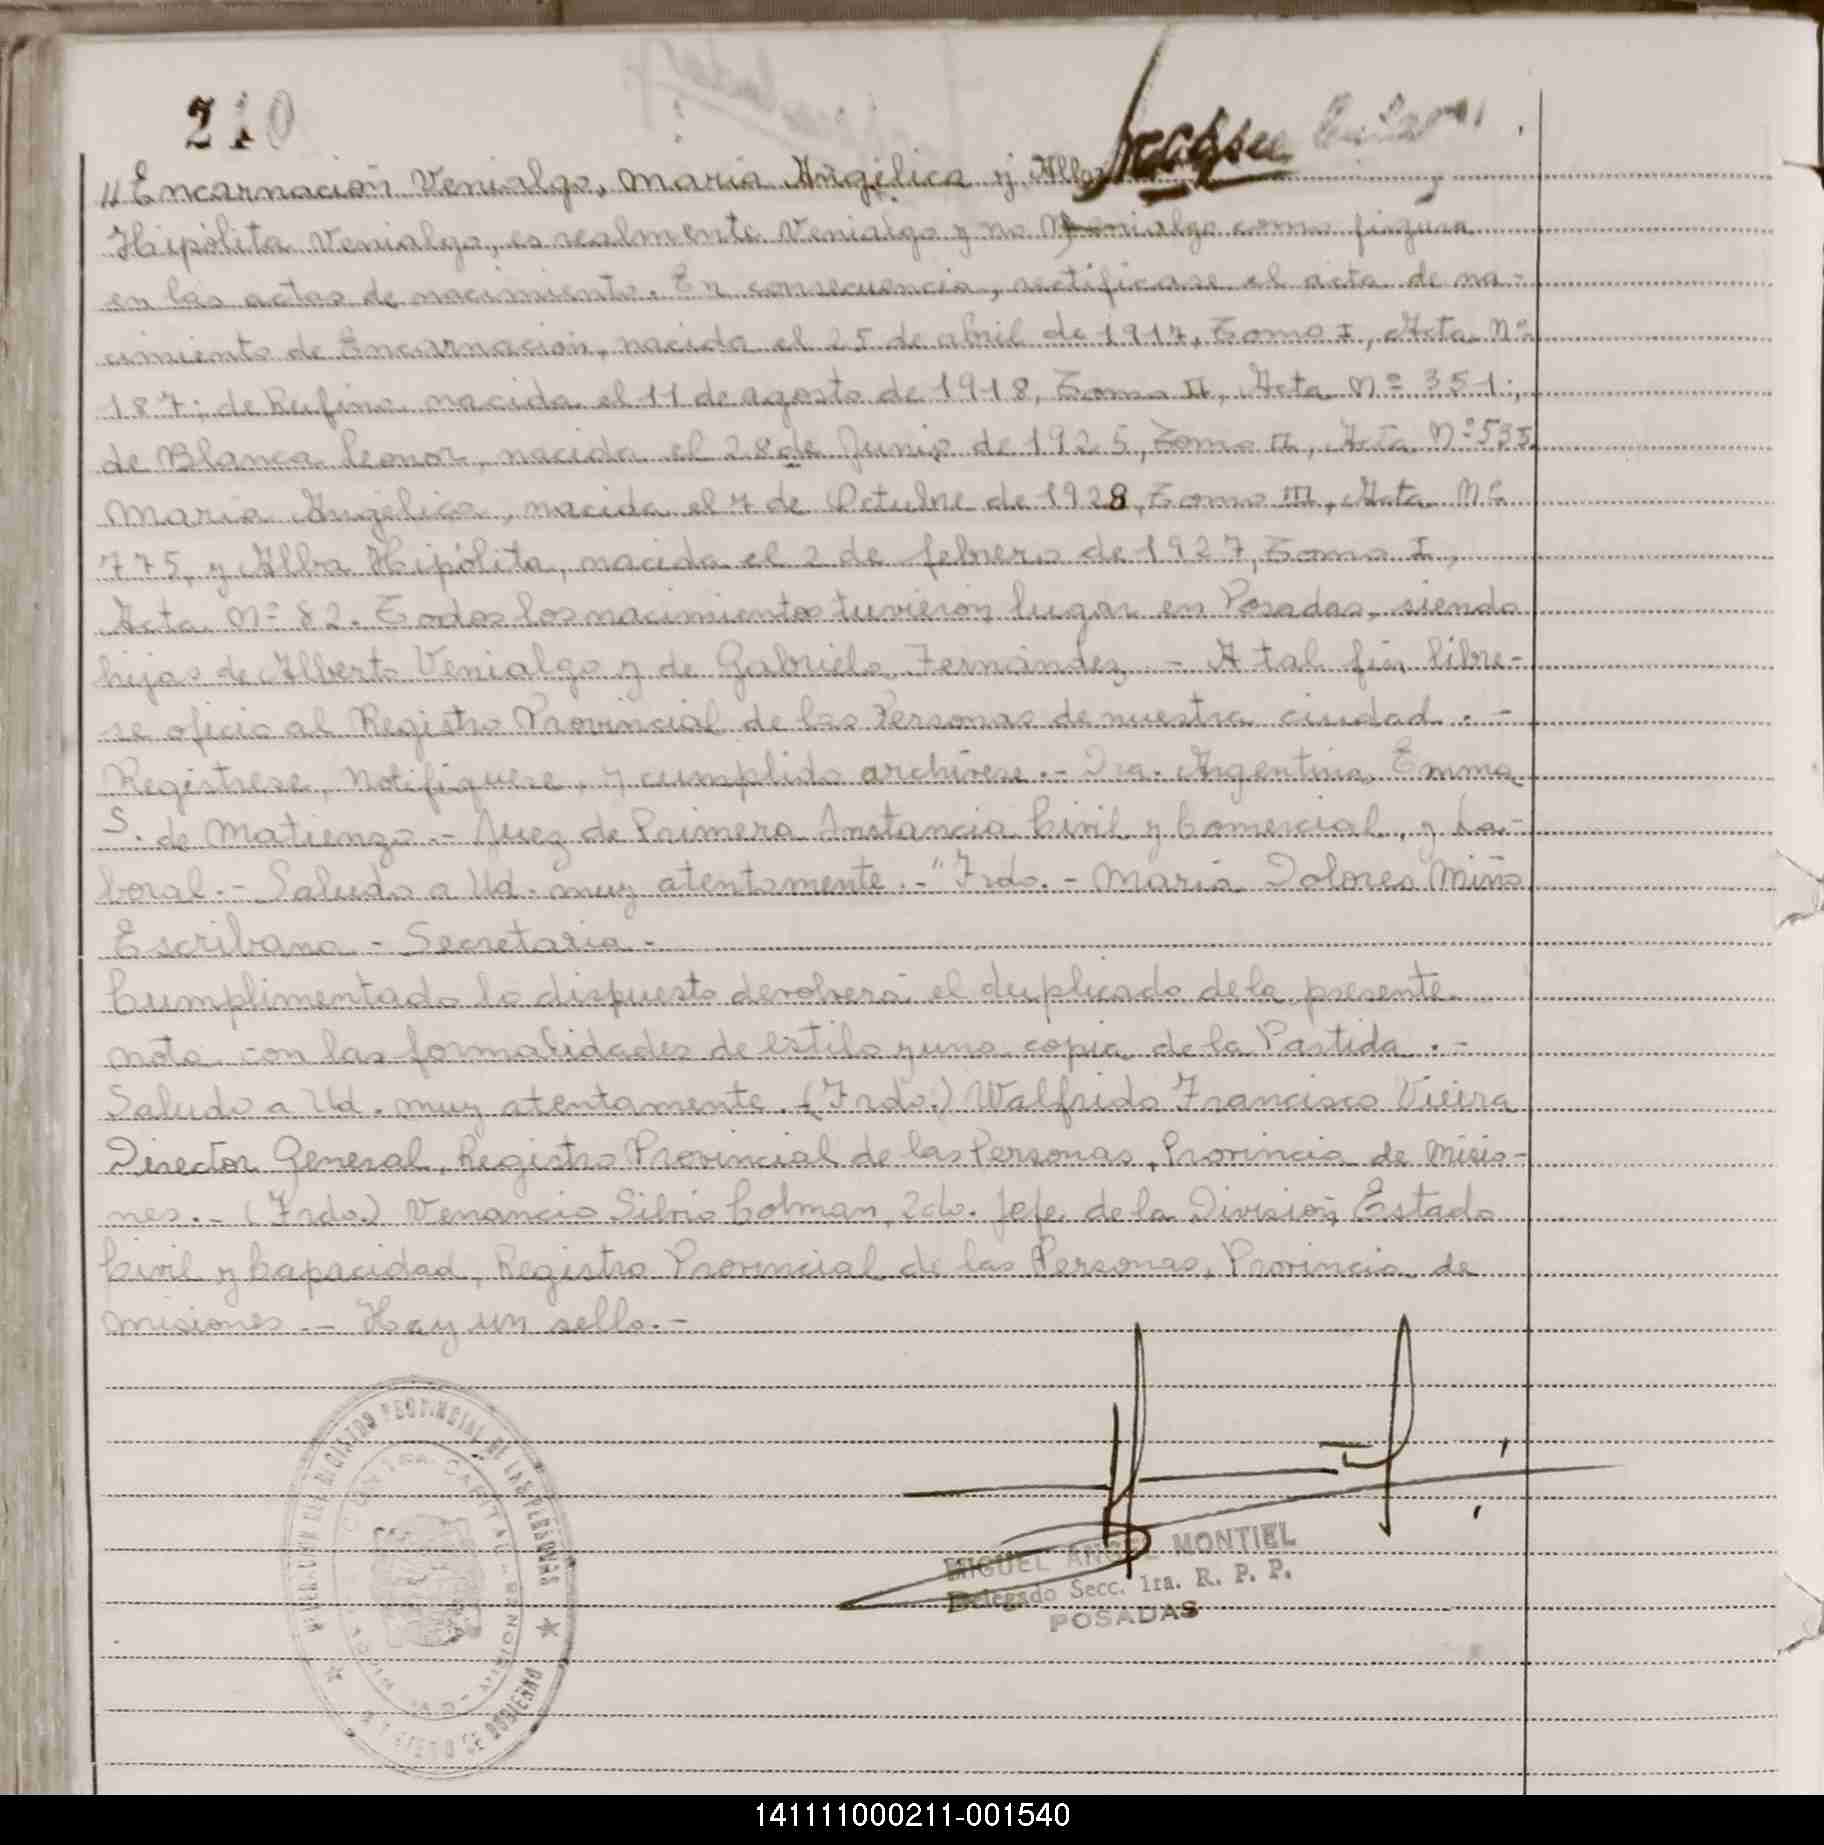 210
//Encarnación Venialgo, María Angélica y Alba
Hipólita Venialgo, es realmente Venialgo y no como figura
en las actas de nacimiento. En consecuencia, rectifícase el acta de na-
cimiento de Encarnación, nacida el 25 de abril de 1917, Tomo I, Acta Nº
187; de Rufino nacida el 11 de agosto de 1918, Tomo II, Acta Nº 351;
de Blanca Leonor, nacida el 28 de Junio de 1925, Tomo II, Acta Nº 535
María Angélica, nacida el 7 de Octubre de 1928, Tomo III, Acta Nº
775, y Alba Hipólita, nacida el 2 de febrero de 1927, Tomo I,
Acta Nº 82. Todos los nacimientos tuvieron lugar en Posadas, siendo
hijas de Alberto Venialgo y de Gabriela Fernández - A tal fin líbre-
se oficio al Registro Provincial de las Personas de nuestra ciudad. -
Regístrese, Notifíquese, y cumplido archívese. - Dra. Argentina Emma
S. de Matienzo. - Juez de Primera Instancia Civil y Comercial, y La-
boral. - Saludo a Ud. muy atentamente. -" Frdo. - María Dolores Miño
Escribana - Secretaria -
Cumplimentado lo dispuesto devolverá el duplicado de la presente
nota con las formalidades de estilo y una copia de la Partida. -
Saludo a Ud. muy atentamente. (Frdo.) Walfrido Francisco Vieira
Director General, Registro Provincial de las Personas, Provincia de Misio-
nes. - (Frdo.) Venancio Silvio Colman, 2do. Jefe de la División Estado
Civil y Capacidad, Registro Provincial de las Personas, Provincia de
Misiones. - Hay un sello. -
MIGUEL ANGEL MONTIEL
Delegado Secc. 1ra. R. P. P.
POSADAS
141111000211-001540